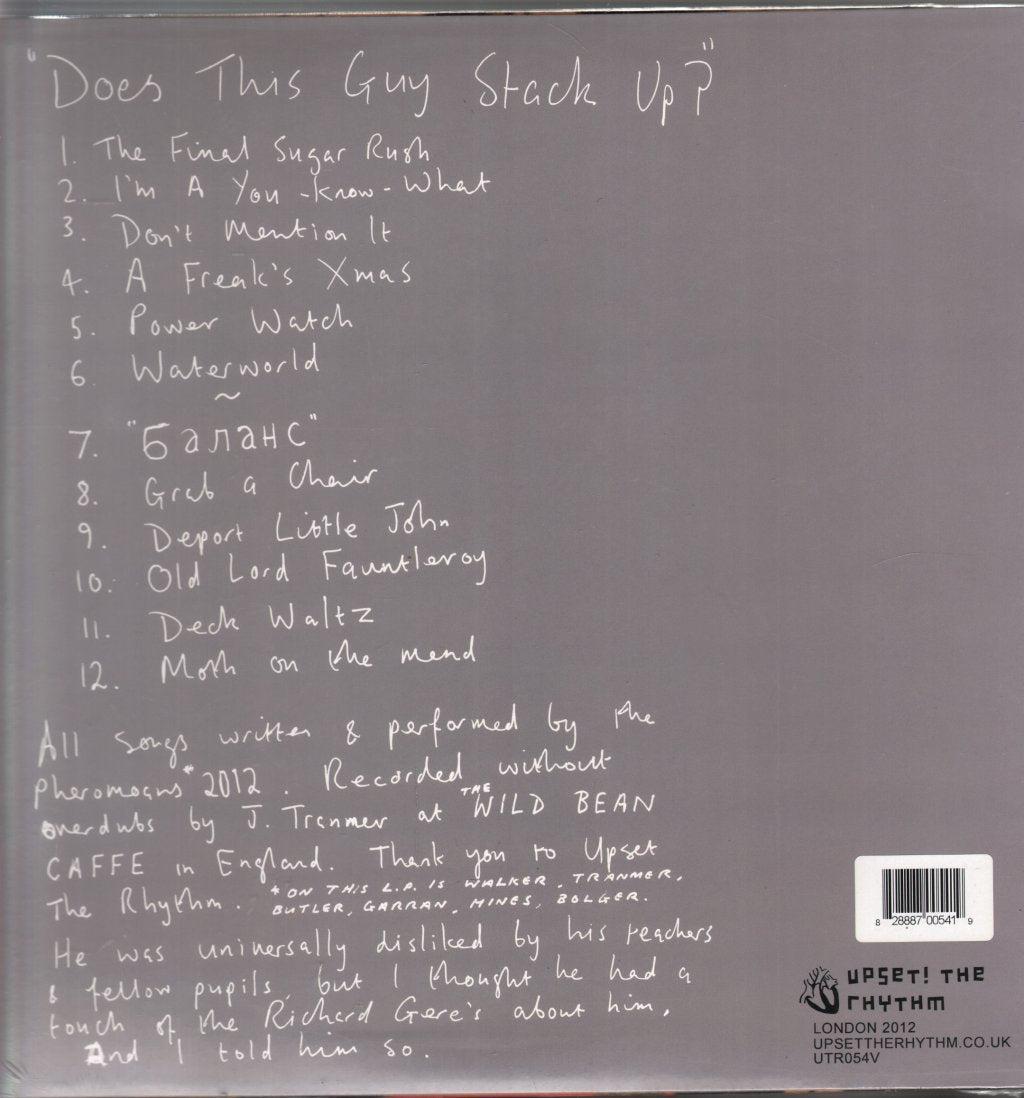 "Does This Guy Stack Up?"
1. The Final Sugar Rush
2. I'm A You-Know-What
3. Don't Mention It
4. A Freak's Xmas
5. Power Watch
6. Waterworld
~
7. "Баланс"
8. Grab a Chair
9. Deport Little John
10. Old Lord Fauntleroy
11. Deck Waltz
12. Moth on the mend
All songs written & performed by the
pheromoans* 2012. Recorded without
overdubs by J. Tranmer at THE WILD BEAN
CAFFE in England. Thank you to Upset
The Rhythm. * ON THIS L.P. IS WALKER, TRANMER,
BUTLER, GARRAN, HINES, BOLGER.
He was universally disliked by his teachers
& fellow pupils, but I thought he had a
touch of the Richard Gere's about him,
And I told him so.
8 28887 00541 9
UPSET! THE
RHYTHM
LONDON 2012
UPSETTHERHYTHM.CO.UK
UTR054V